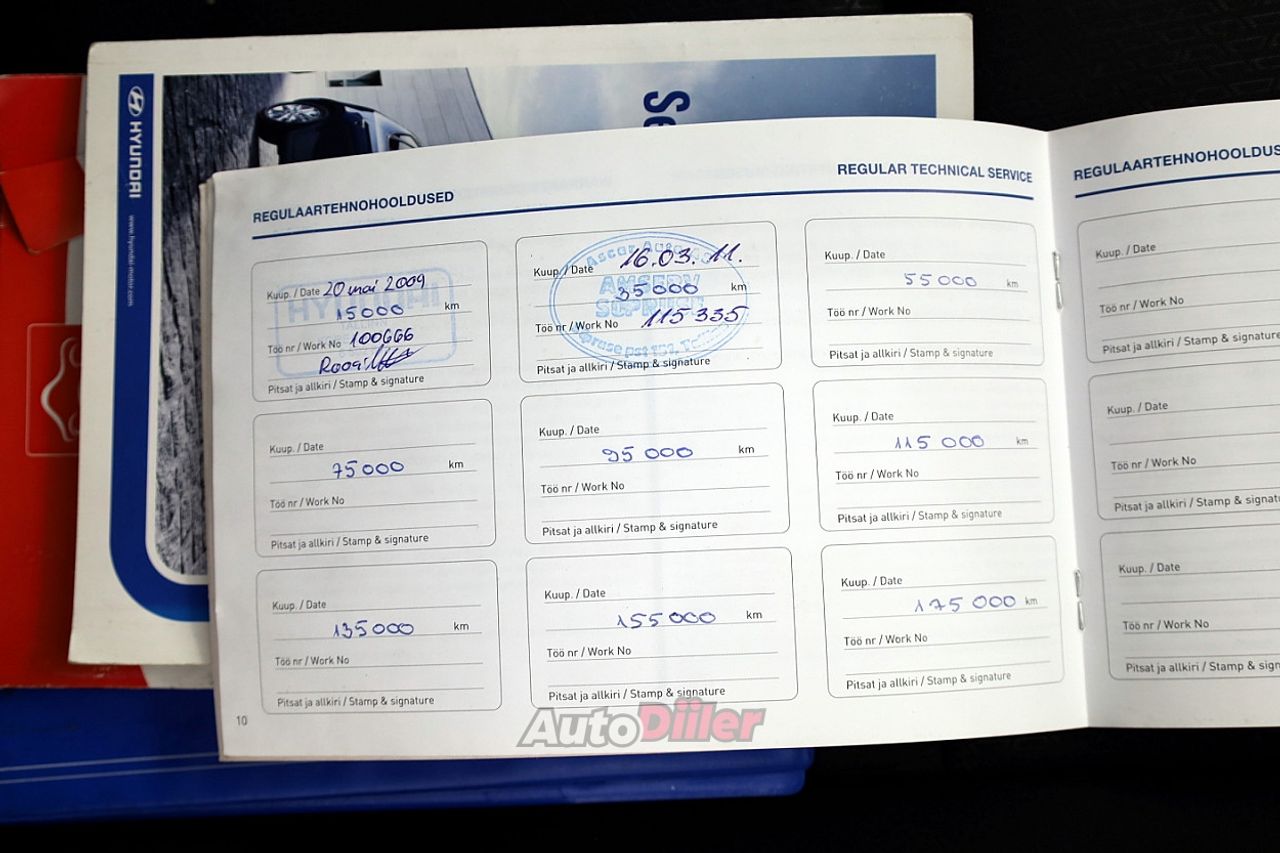 HYUNDAI
www.hyundai-motor.com
Se
REGULAARTEHNOHOOLDUSED
REGULAR TECHNICAL SERVICE
Kuup. / Date 20 mai 2009
15000 km
Töö nr / Work No 100666
Pitsat ja allkiri / Stamp & signature
HYUNDAI
TALLINN
Kuup. / Date 16.03.11.
35000 km
Töö nr / Work No 115335
Pitsat ja allkiri / Stamp & signature
AMSERV
Kuup. / Date
55000 km
Töö nr / Work No
Pitsat ja allkiri / Stamp & signature
Kuup. / Date
75000 km
Töö nr / Work No
Pitsat ja allkiri / Stamp & signature
Kuup. / Date
95000 km
Töö nr / Work No
Pitsat ja allkiri / Stamp & signature
Kuup. / Date
115000 km
Töö nr / Work No
Pitsat ja allkiri / Stamp & signature
Kuup. / Date
135000 km
Töö nr / Work No
Pitsat ja allkiri / Stamp & signature
Kuup. / Date
155000 km
Töö nr / Work No
Pitsat ja allkiri / Stamp & signature
Kuup. / Date
175000 km
Töö nr / Work No
Pitsat ja allkiri / Stamp & signature
10
REGULAARTEHNOHOOLDUS
Kuup. / Date
Töö nr / Work No
Pitsat ja allkiri / Stamp & signatu
Kuup. / Date
Töö nr / Work No
Pitsat ja allkiri / Stamp & signat
Kuup. / Date
Töö nr / Work No
Pitsat ja allkiri / Stamp & sig
AutoDiiler